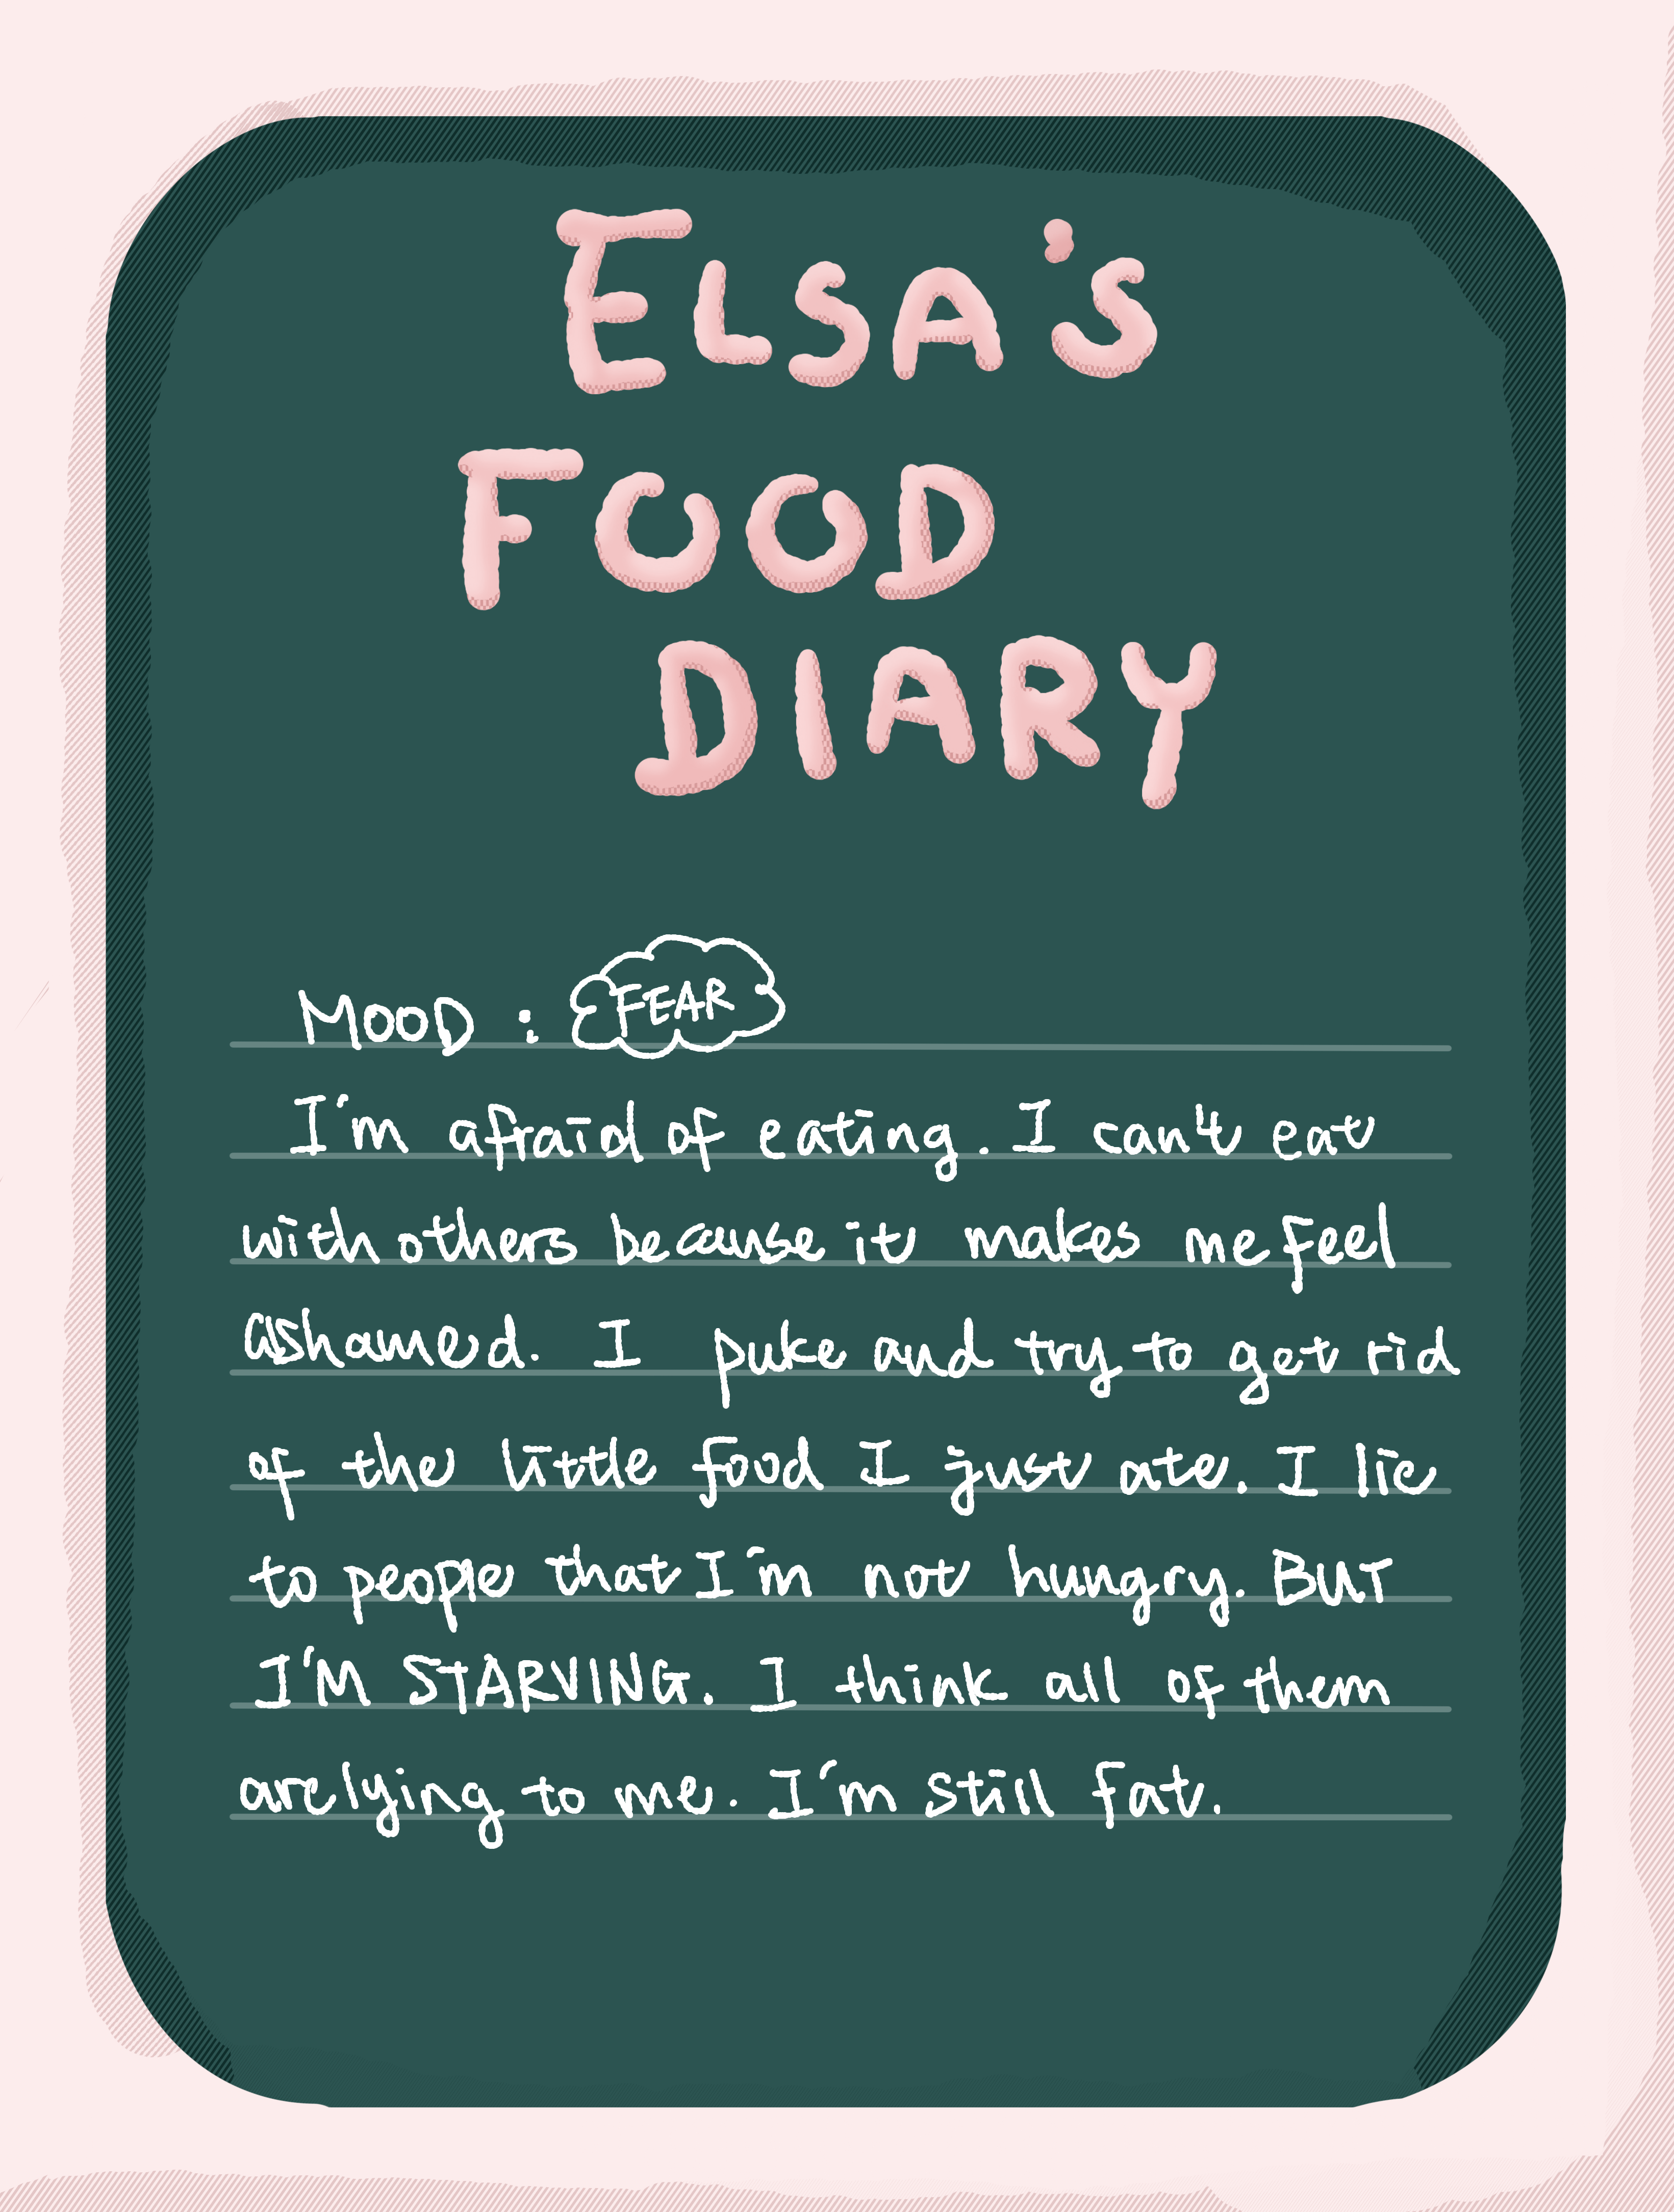 ELSA'S
FOOD
DIARY
MOOD : FEAR
I'm afraid of eating. I can't eat
with others because it makes me feel
ashamed. I puke and try to get rid
of the little food I just ate. I lie
to people that I'm not hungry. BUT
I'M STARVING. I think all of them
are lying to me. I'm still fat.